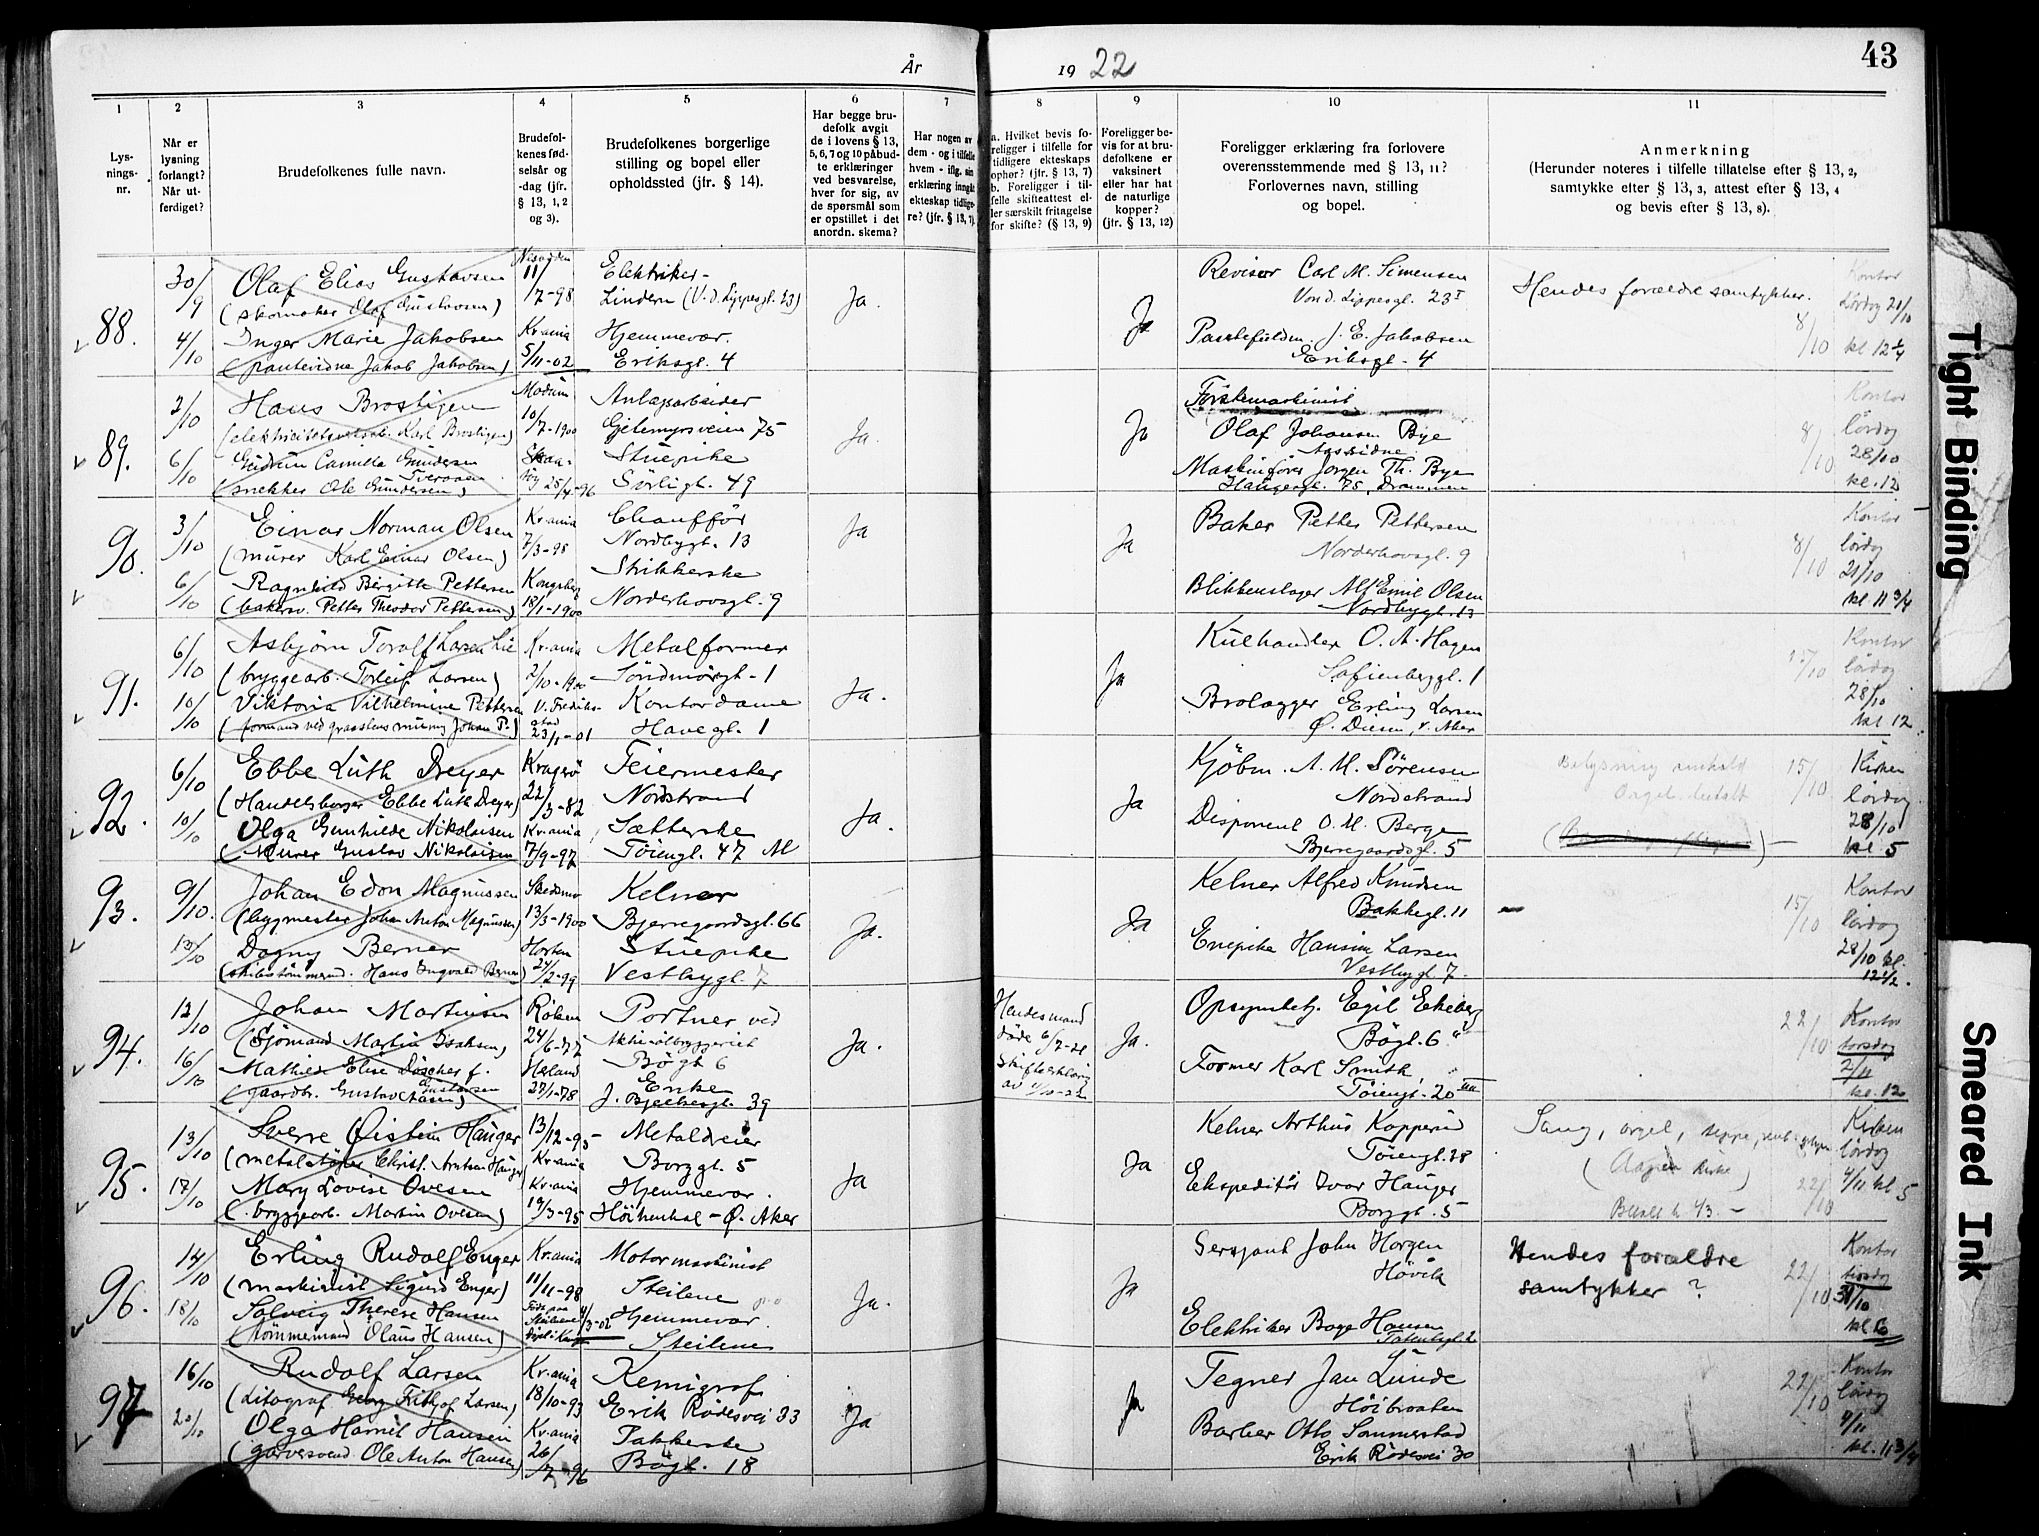 År 1922
43
1
2
3
4
5
6
7
8
9
10
11
Lys-
nings-
nr.
Når er
lysning
forlangt?
Når ut-
ferdiget?
Brudefolkenes fulle navn.
Brudefol-
kenes fød-
selsår og
-dag (jfr.
§ 13, 1, 2
og 3).
Brudefolkenes borgerlige
stilling og bopel eller
opholdssted (jfr. § 14).
Har begge bru-
defolk avgit
de i lovens § 13,
5, 6, 7 og 10 påbud-
te erklæringer
ved besvarelse,
hver for sig, av
de spørsmål som
er opstillet i det
anordn. skema?
Har nogen av
dem - og i tilfelle
hvem - iflg. sin
erklæring inngåt
ekteskap tidlige-
re? (jfr. § 13, 7)
a. Hvilket bevis fo-
religger i tilfelle for
tidligere ekteskaps
ophør? (jfr. § 13, 7)
b. Foreligger i til-
felle skifteattest el-
ler særskilt fritagelse
for skifte? (§ 13, 9)
Foreligger be-
vis for at bru-
defolkene er
vaksinert
eller har hat
de naturlige
kopper?
(jfr. § 13, 12)
Foreligger erklæring fra forlovere
overensstemmende med § 13, 11?
Forlovernes navn, stilling
og bopel.
Anmerkning
(Herunder noteres i tilfelle tillatelse efter § 13, 2,
samtykke efter § 13, 3, attest efter § 13, 4
og bevis efter § 13, 8).
88.
30/9
4/10
Olaf Elias Gustavsen
(skomaker Olaf Gustavsen)
Inger Marie Jakobsen
(pantevidne Jakob Jakobsen)
Nesodden
11/7-98
Kr.ania
5/11-02
Elektriker
Lindern (V. d. Lippesgt. 23)
Hjemmevær.
Eriksgt. 4
Ja.
Ja
Revisor Carl M. Simensen
Von d. Lippesgt. 23 I
J. E. Jakobsen
Eriksgt. 4
Hendes forældre samtykker.
8/10
Kontor
Lördag 21/10
kl 12 1/4
89.
2/10
6/10
Hans Brostigen
Karl Brostigen)
Gudrun Camilla Gundersen
Tveraaen
(snekker Ole Gundersen)
Modum
10/7-1900
Skaa-
töy 25/4-96
Anlægsarbeider
Gjetemyrsveien 75
Stuepike
Sörligt. 49
Ja.
Ja
Förstemaskinist
Olaf Johansen Bye
Aassidne
Maskinförer Jörgen Th. Bye
Haugesgt. 75, Drammen
8/10
Kontor
lördag
28/10
kl. 12
90.
3/10
6/10
Einar Norman Olsen
(murer Karl Einar Olsen)
Ragnhild Birgitte Pettersen
(bakersv. Petter Theodor Pettersen)
Kr.ania
7/3-98
Kongsberg
18/1-1900
Chaufför
Nordbygt. 13
Strikkerske
Norderhovsgt. 9
Ja
Ja
Baker Petter Pettersen
Norderhovsgt. 9
Blikkenslager Alf Emil Olsen
Nordbygt. 13
8/10
Kontor
lördag
21/10
kl 11 3/4
91.
6/10
10/10
Asbjörn Toralf Larsen Lie
(bryggearb. Torleif Larsen)
Viktoria Vilhelmine Pettersen
Johan P.)
Kr.ania
2/10-1900
V. Fredrik-
stad
23/1-01
Metalformer
Söndmörgt. 1
Kontordame
Havegt. 1
Ja.
Ja
Kulhandler O. A. Hagen
Sofienberggt. 1
Brolægger Erling Larsen
Ø. Diesen, v. Aker
15/10
Kontor
lördag
28/10
kl 12.
92.
6/10
10/10
Ebbe Luth Dreyer
(Handelsborger Ebbe Luth Dreyer)
Olga Gunhilde Nikolaisen
(Murer Gustav Nikolaisen
Kragerö
22/3-82
Kr.ania
7/9-97
Feiermester
Nordstrand
Sætterske
Töiengt. 47 M
Ja.
Ja
Kjöbm. A. M. Sörensen
Nordstrand
Disponent O. M. Berge
Bjerregaardsgt. 5
Orgel betalt
15/10
Kirken
lördag
28/10
kl 5
93.
9/10.
13/10
Johan Edon Magnussen
(bygmester Johan Anton Magnussen)
Dagny Berner
(skibstömmermd. Hans Ingvald Berner)
Skedsmo
13/3-1900
Horten
24/2-99
Kelner
Bjerregaardsgt. 66
Stuepike
Vestbygt. 7
Ja.
Ja.
Kelner Alfred Knudsen
Bakkegt. 11
Enepike Hansine Larsen
Vestbygt 7.
15/10
Kontor
lördag
28/10 kl.
12 1/2.
94.
12/10
16/10
Johan Martinsen
(Sjömand Martin Isaksen)
Mathilde Elise Döscher f.
Gustavsen
(gaardbr. Gustav Aasen)
Röken
24/6-77
Høland
27/1-78
Portner ved
Aktieölbryggeriet
Bögt 6
Enke
J. Bjelkesgt. 39
Ja.
Hendes mand
döde 6/7-21
Skifteerklæring
av 4/10-22
Ja.
Opsynsbetj. Egil Ekeberg
Bögt. 6
Former Karl Smith
Töiengt. 20 III
22/10
Kontor
torsdag
2/11
kl. 12
95.
13/10
17/10
Sverre Öistein Hauger
(metalstöper Christ. Anton Hauger
Mary Lovise Ovesen
(bryggearb. Martin Ovesen)
13/12-95
Kr.ania
Kr.ania
19/3-95
Metaldreier
Borggt. 5
Hjemmevær.
Höienhal - Ø. Aker
Ja
Ja
Kelner Arthur Kopperud
Töiengt. 28
Ekspeditör Ivar Hauger
Borggt. 5
Sang, orgel, teppe,
22/10
Kirken
lördag
4/11 kl 5
96.
14/10
18/10
Erling Rudolf Enger
(maskinist Sigurd Enger)
Solveig Therese Hansen
(tömmermand Olaus Hansen)
Kr.ania
11/11-98
4/3-02
Motormaskinist
Steilene
Hjemmevær.
Steilene
Ja.
Ja
Sersjant John Horgen
Hövik
Elektriker Borge Hansen
Hendes forældre
samtykker?
22/10
Kontor
tirsdag
31/10
kl 6
97
16/10
20/10
Rudolf Larsen
(Litograf Georg Fritjof Larsen)
Olga Harriet Hansen
(garversvend Ole Anton Hansen)
Kr.ania
18/10-93
Kr.ania
26/7-96
Kemigraf
Erik Rödesvei 33
Pakkerske
Bögt. 18
Ja
Ja
Tegner Jan Lunde
Höibraaten
Barber Otto Sommerstad
Erik Rödesvei 30
22/10
Kontor
lördag
4/11
kl. 11 3/4
Tight Binding
Smeared Ink